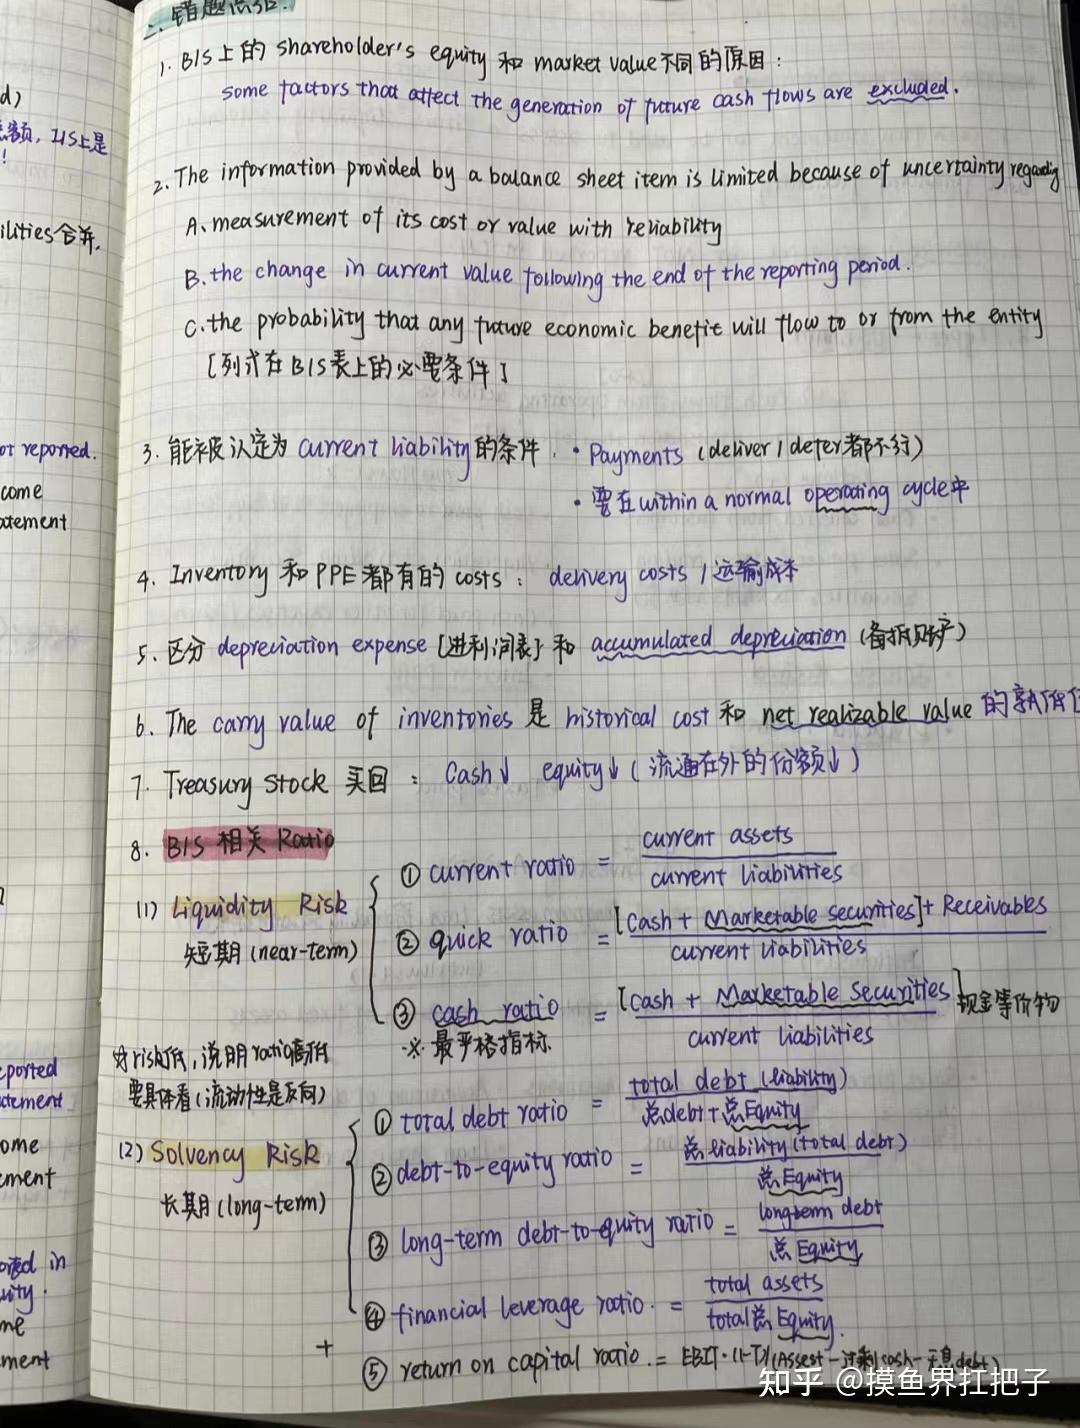 二、错题总结.
1. B/S上的 shareholder's equity 和 market value不同的原因:
some factors that affect the generation of future cash flows are excluded.
2. The information provided by a balance sheet item is limited because of uncertainty regarding
A. measurement of its cost or value with reliability
B. the change in current value following the end of the reporting period.
C. the probability that any future economic benefit will flow to or from the entity
[列式在B/S表上的必要条件]
3. 能被认定为 current liability的条件. • Payments (deliver / defer都不行)
• 要在within a normal operating cycle中
4. Inventory 和 PPE都有的 costs: delivery costs / 运输成本
5. 区分 depreciation expense [进利润表] 和 accumulated depreciation (备抵资产)
6. The carry value of inventories 是 historical cost 和 net realizable value 的孰低
7. Treasury stock 买回: Cash↓ equity↓ (流通在外的份额↓)
8. B/S 相关 Ratio
(1) Liquidity Risk
短期 (near-term)
① current ratio = current assets
current liabilities
② quick ratio = [Cash + Marketable securities] + Receivables
current liabilities
③ cash ratio = [Cash + Marketable securities] 现金等价物
current liabilities
※ 最严格指标
对risk低,说明ratio高/低
要具体看(流动性是反向)
(2) Solvency Risk
长期 (long-term)
① total debt ratio = total debt (liability)
总debt + 总Equity
② debt-to-equity ratio = 总liability (total debt)
总Equity
③ long-term debt-to-equity ratio = long-term debt
总Equity
④ financial leverage ratio. = total assets
total总Equity.
+
⑤ return on capital ratio. = EBIT·(1-T)/(Assest - 过剩cash - 无息debt)
d)
I/S上是
!
ilities合并.
ot reported.
come
atement
ported
atement
ome
ement
orted in
uity.
me
ment
知乎 @摸鱼界扛把子